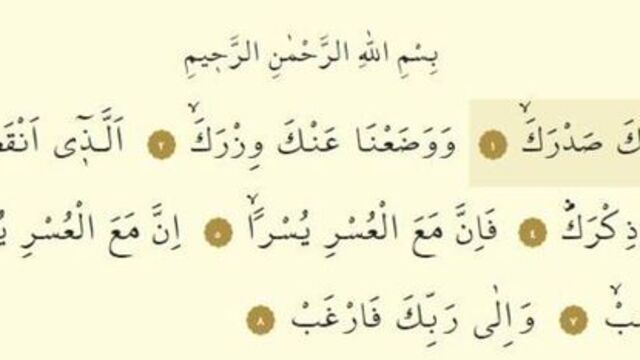 بِسْمِ اللهِ الرَّحْمٰنِ الرَّح۪يمِ
كَ صَدْرَكَۙ ١ وَوَضَعْنَا عَنْكَ وِزْرَكَۙ ٢ اَلَّذ۪ٓي اَنْقَ
ذِكْرَكَۜ ٤ فَاِنَّ مَعَ الْعُسْرِ يُسْراًۙ ٥ اِنَّ مَعَ الْعُسْرِ يُ
بْۙ ٧ وَاِلٰى رَبِّكَ فَارْغَبْ ٨